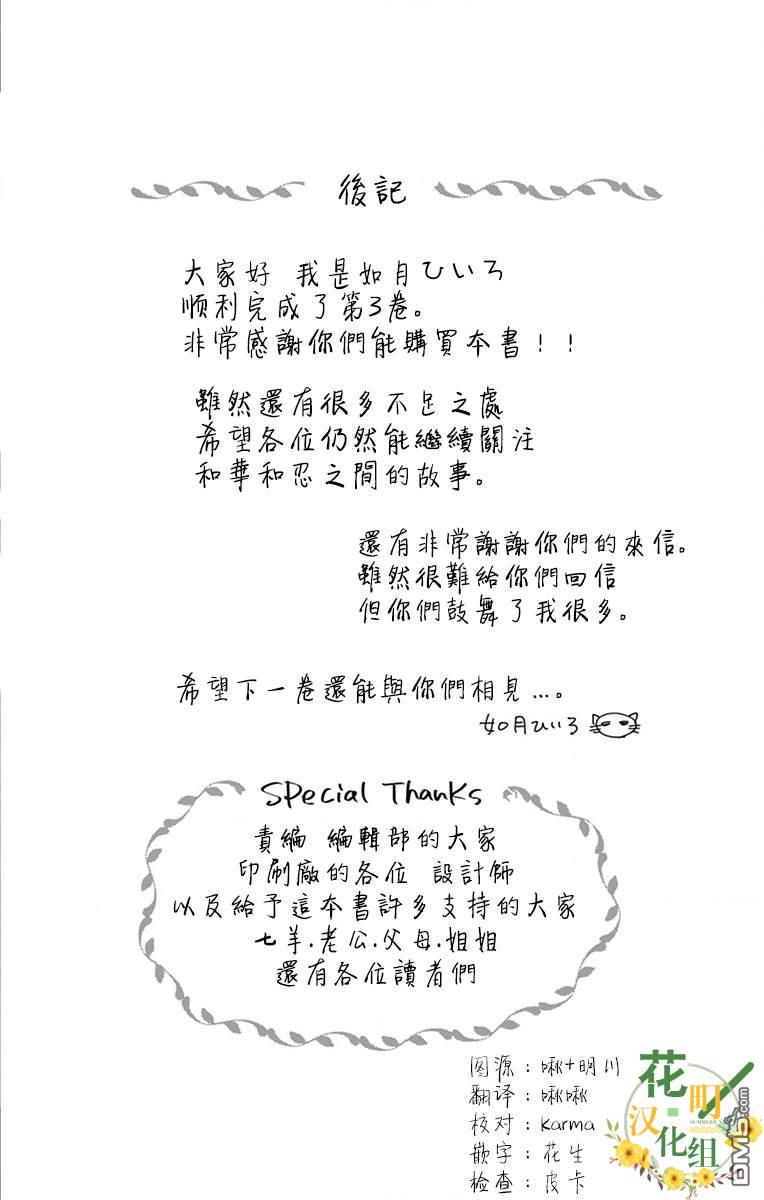 後記
大家好 我是如月ひいろ
顺利完成了第3卷。
非常感謝你們能購買本書！！
雖然還有很多不足之處
希望各位仍然能繼續關注
和華和忍之間的故事。
還有非常謝謝你們的來信。
雖然很難給你們回信
但你們鼓舞了我很多。
希望下一卷還能與你們相見...。
如月ひいろ
Special Thanks
責編 編輯部的大家
印刷廠的各位 設計師
以及給予這本書許多支持的大家
七羊.老公.父母.姐姐
還有各位讀者們
图源：啾+明川
翻译：啾啾
校对：Karma
嵌字：花生
检查：皮卡
花町
汉化组
DM5.com